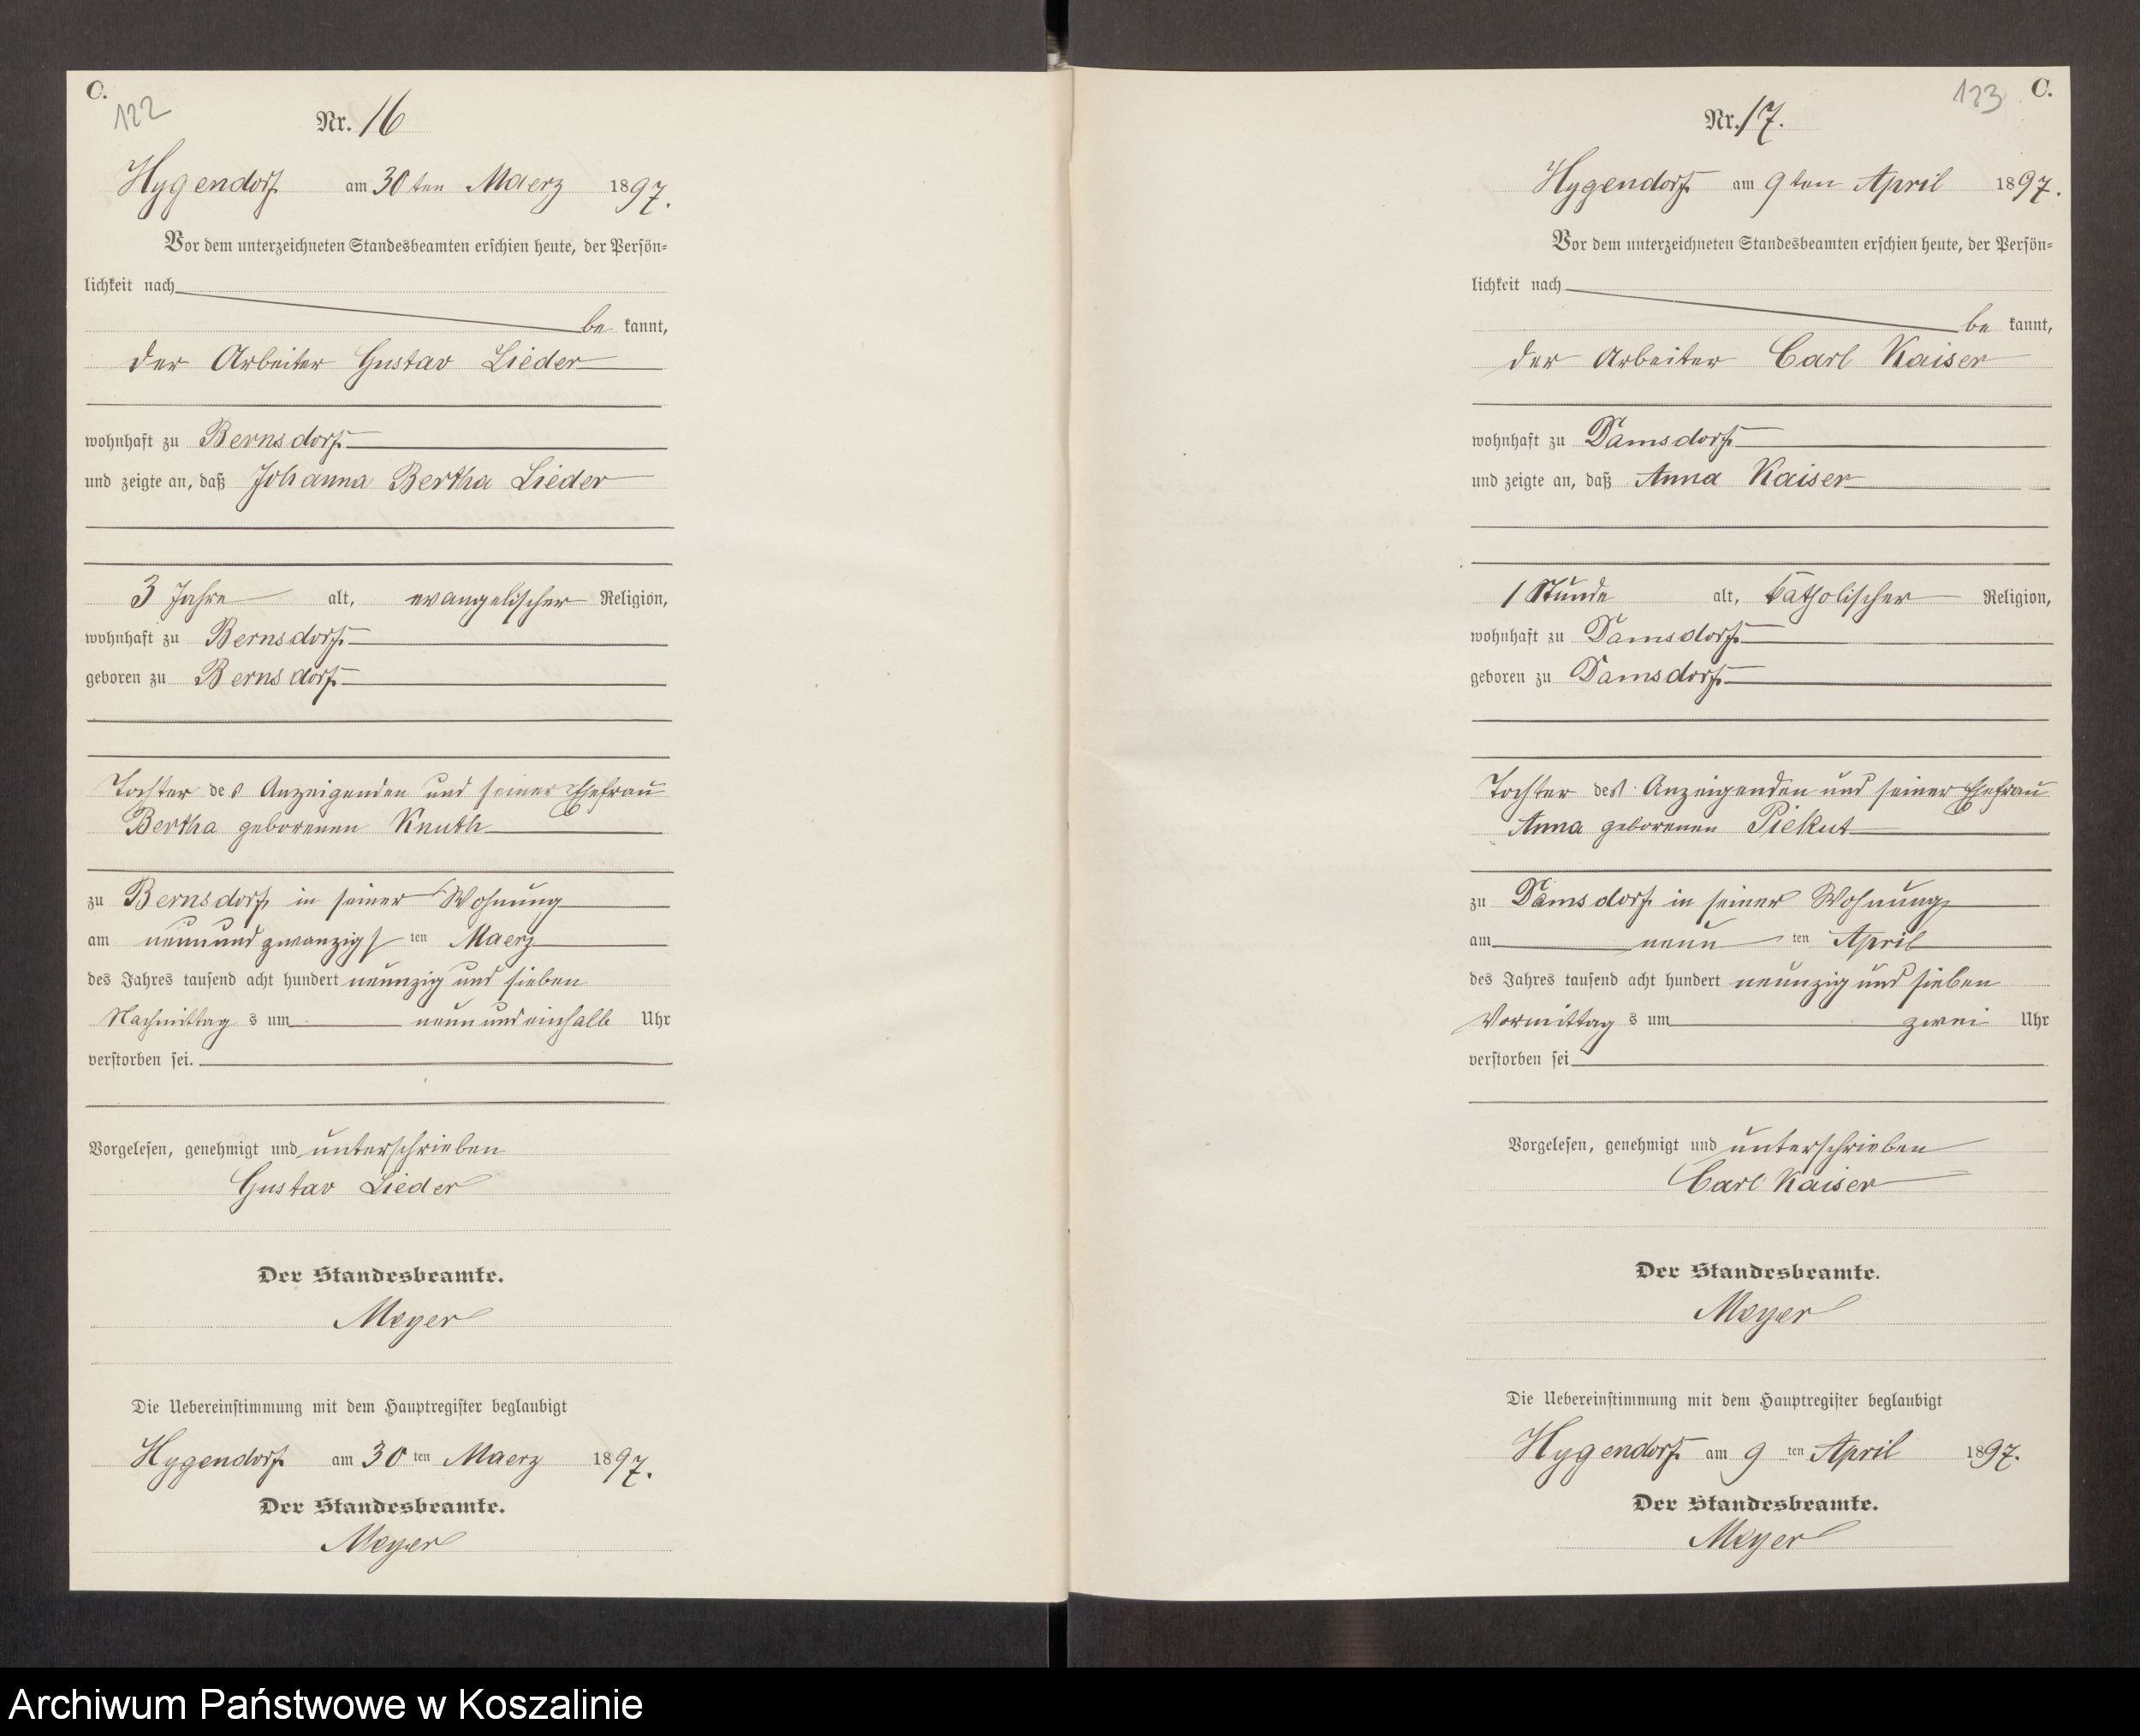 C.
122
Nr. 16
Hygendorf am 30ten Maerz 1897.
Vor dem unterzeichneten Standesbeamten erschien heute, der Persön-
lichkeit nach
be kannt,
der Arbeiter Gustav Lieder
wohnhaft zu Bernsdorf
und zeigte an, daß Johanna Bertha Lieder
3 Jahre alt, evangelischer Religion,
wohnhaft zu Bernsdorf
geboren zu Bernsdorf
Tochter des Anzeigenden und seiner Ehefrau
Bertha geborenen Knuth
zu Bernsdorf in seiner Wohnung
am neunundzwanzigsten Maerz
des Jahres tausend acht hundert neunzig und sieben
Nachmittag s um neunundeinhalb Uhr
verstorben sei.
Vorgelesen, genehmigt und unterschrieben
Gustav Lieder
Der Standesbeamte.
Meyer
Die Uebereinstimmung mit dem Hauptregister beglaubigt
Hygendorf am 30 ten Maerz 1897.
Der Standesbeamte.
Meyer
123 C.
Nr. 17.
Hygendorf am 9ten April 1897.
Vor dem unterzeichneten Standesbeamten erschien heute, der Persön-
lichkeit nach
be kannt,
der Arbeiter Carl Kaiser
wohnhaft zu Damsdorf
und zeigte an, daß Anna Kaiser
1 Stunde alt, katholischer Religion,
wohnhaft zu Damsdorf
geboren zu Damsdorf
Tochter des Anzeigenden und seiner Ehefrau
Anna geborenen Piekut
zu Damsdorf in seiner Wohnung
am neun ten April
des Jahres tausend acht hundert neunzig und sieben
Vormittag s um zwei Uhr
verstorben sei
Vorgelesen, genehmigt und unterschrieben
Carl Kaiser
Der Standesbeamte.
Meyer
Die Uebereinstimmung mit dem Hauptregister beglaubigt
Hygendorf am 9 ten April 1897.
Der Standesbeamte.
Meyer
Archiwum Państwowe w Koszalinie